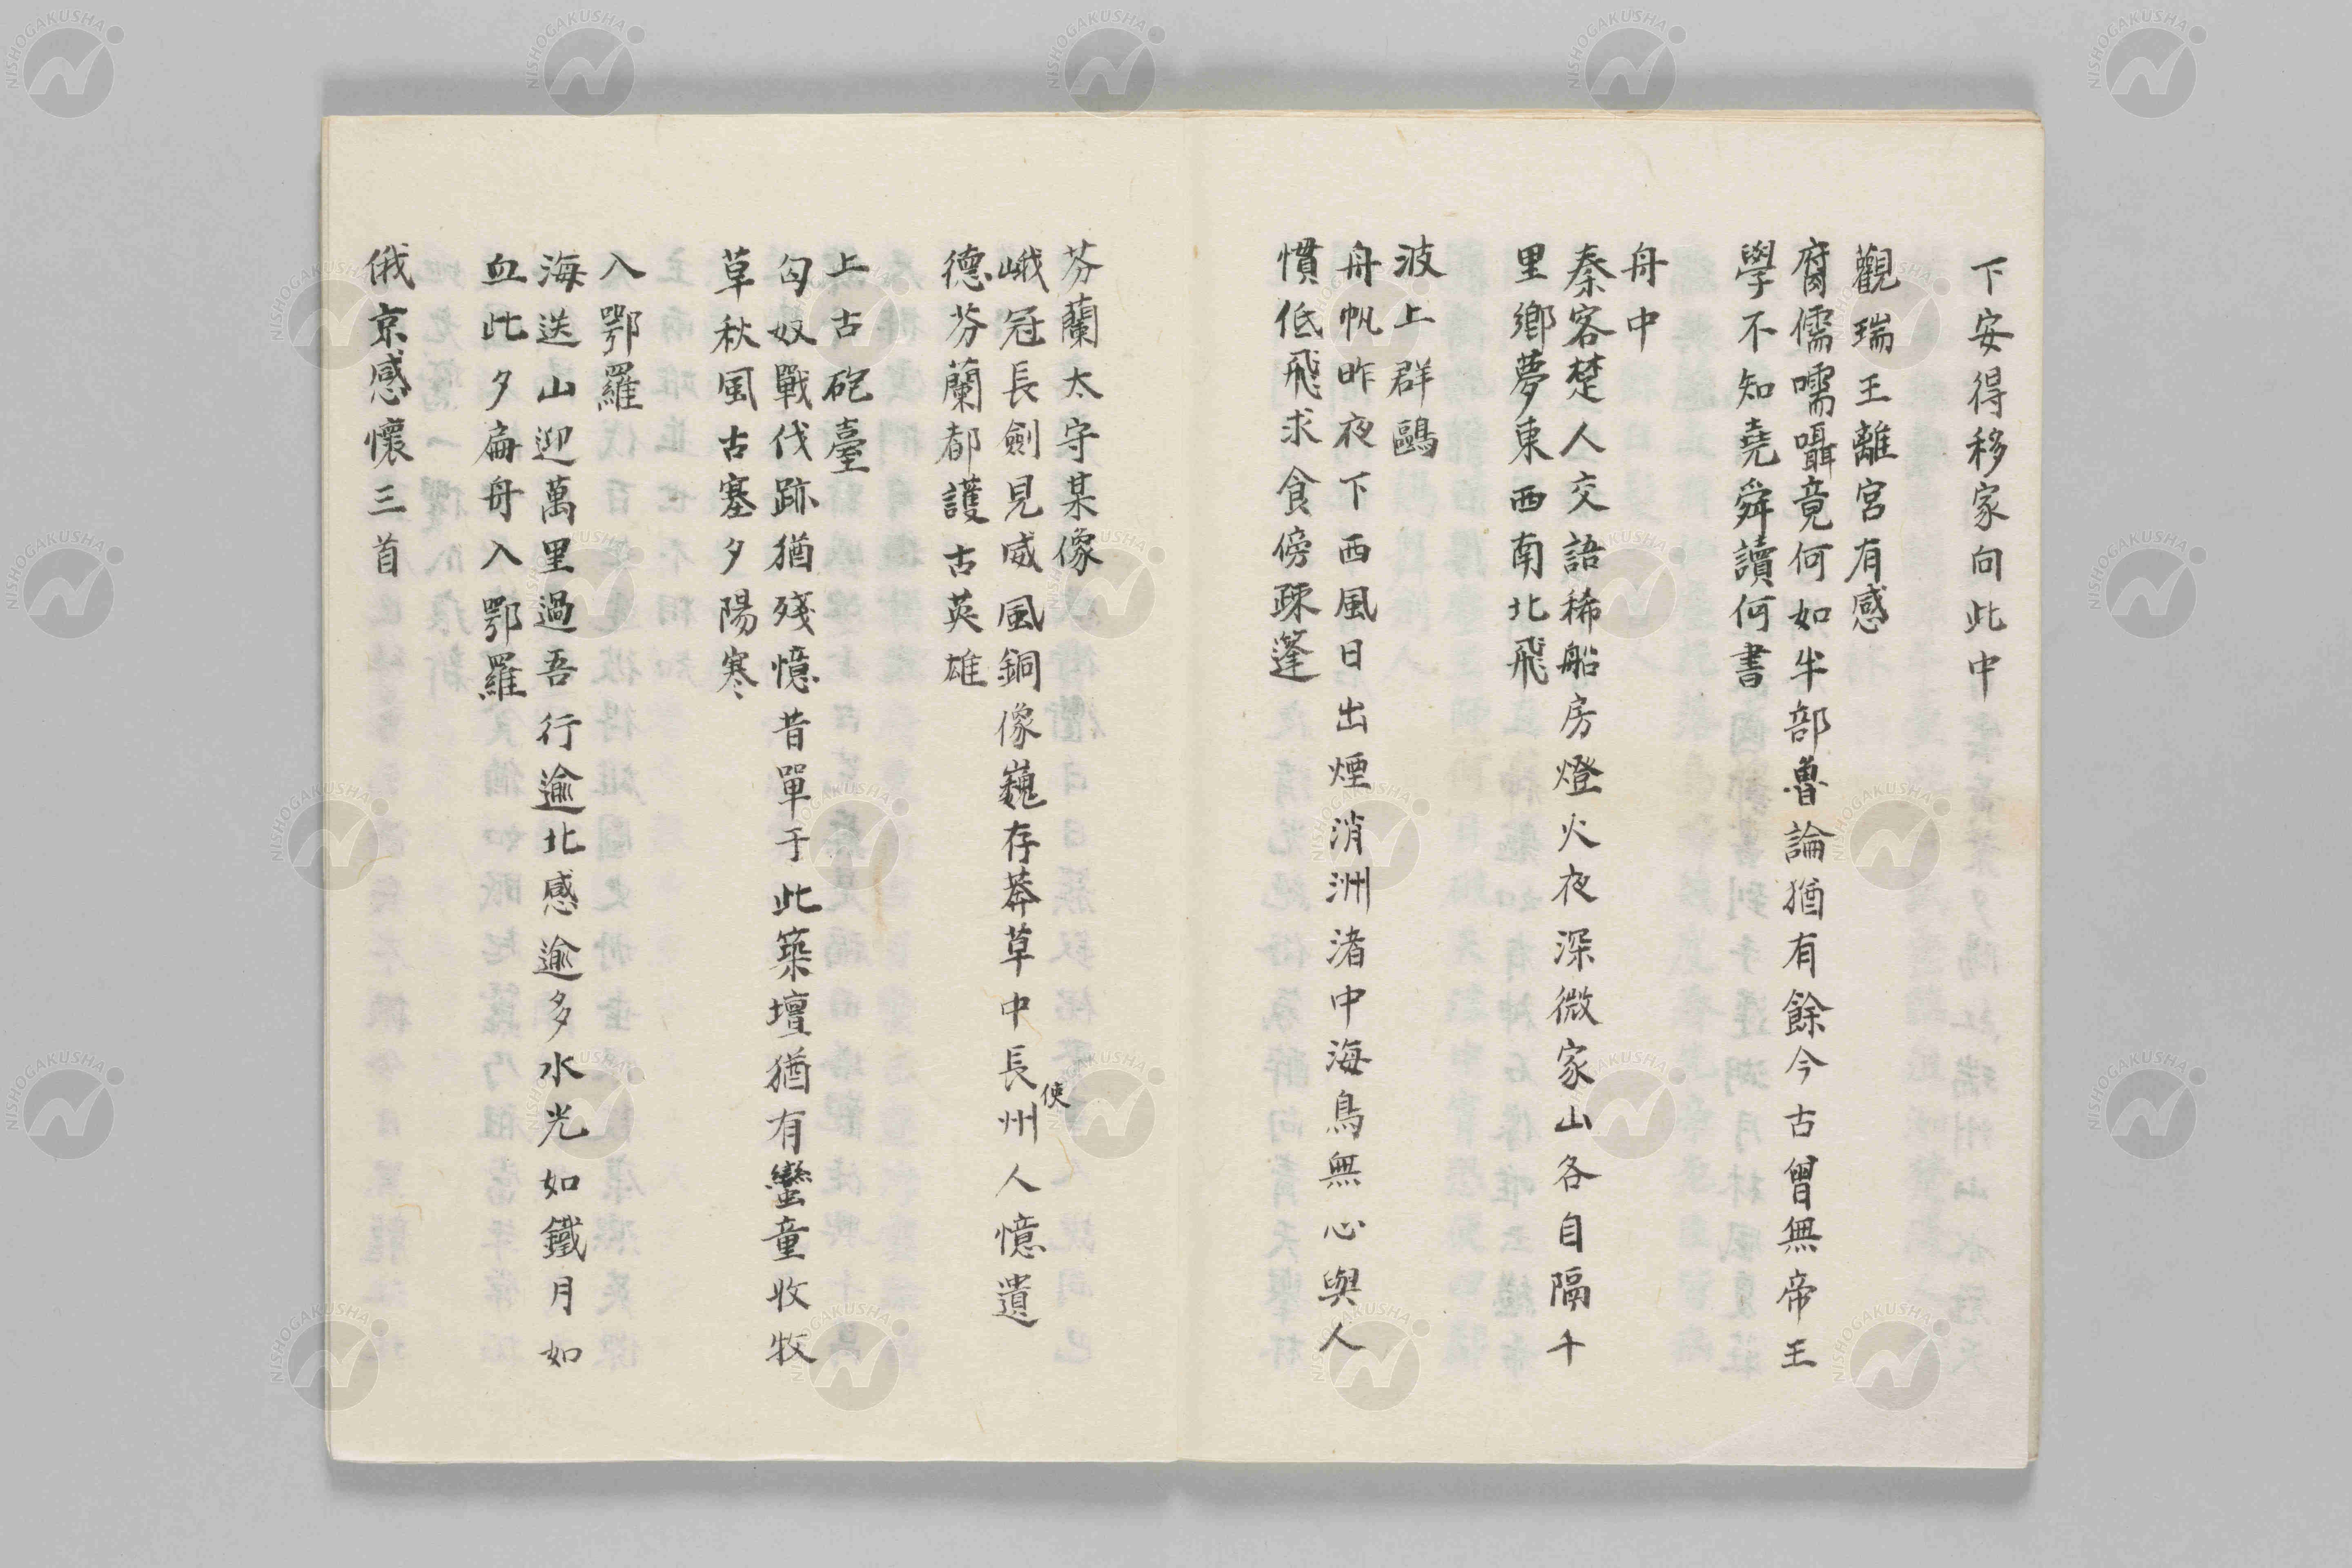 下安得移家向此中
觀瑞王離宮有感
腐儒嚅囁竟何如半部魯論猶有餘今古曾無帝王
學不知堯舜讀何書
舟中
秦客楚人交語稀船房燈火夜深微家山各自隔千
里鄉夢東西南北飛
波上群鷗
舟帆昨夜下西風日出煙消洲渚中海鳥無心與人
慣低飛求食傍疎蓬
芬蘭太守某像
峨冠長劍見威風銅像巍存莽草中長使州人憶遺
德芬蘭都護古英雄
上古砲臺
匈奴戰伐跡猶殘憶昔單于此築壇猶有蠻童收牧
草秋風古塞夕陽寒
入鄂羅
海送山迎萬里過吾行逾北感逾多水光如鐵月如
血此夕扁舟入鄂羅
俄京感懷三首
NISHOGAKUSHA